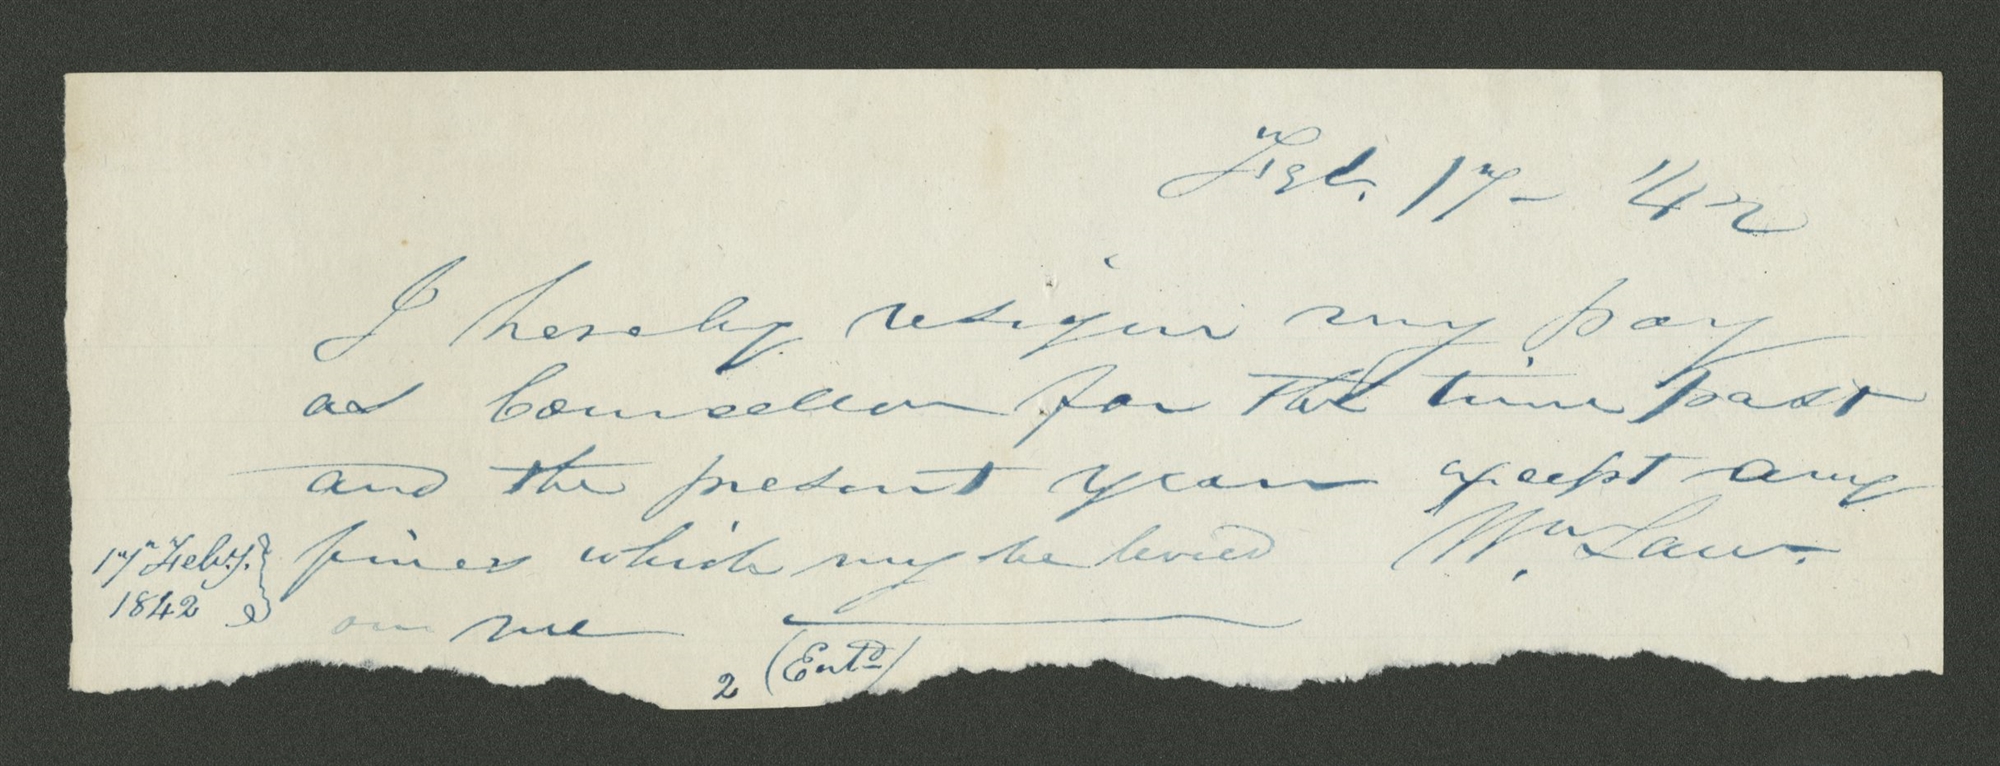 Feb. 17– '42
I hereby resign my pay
as Councellor for the time past
and the present year except any
fines which my be levied Wm. Law.
on me
17 Feby.
1842
2 (Entd)